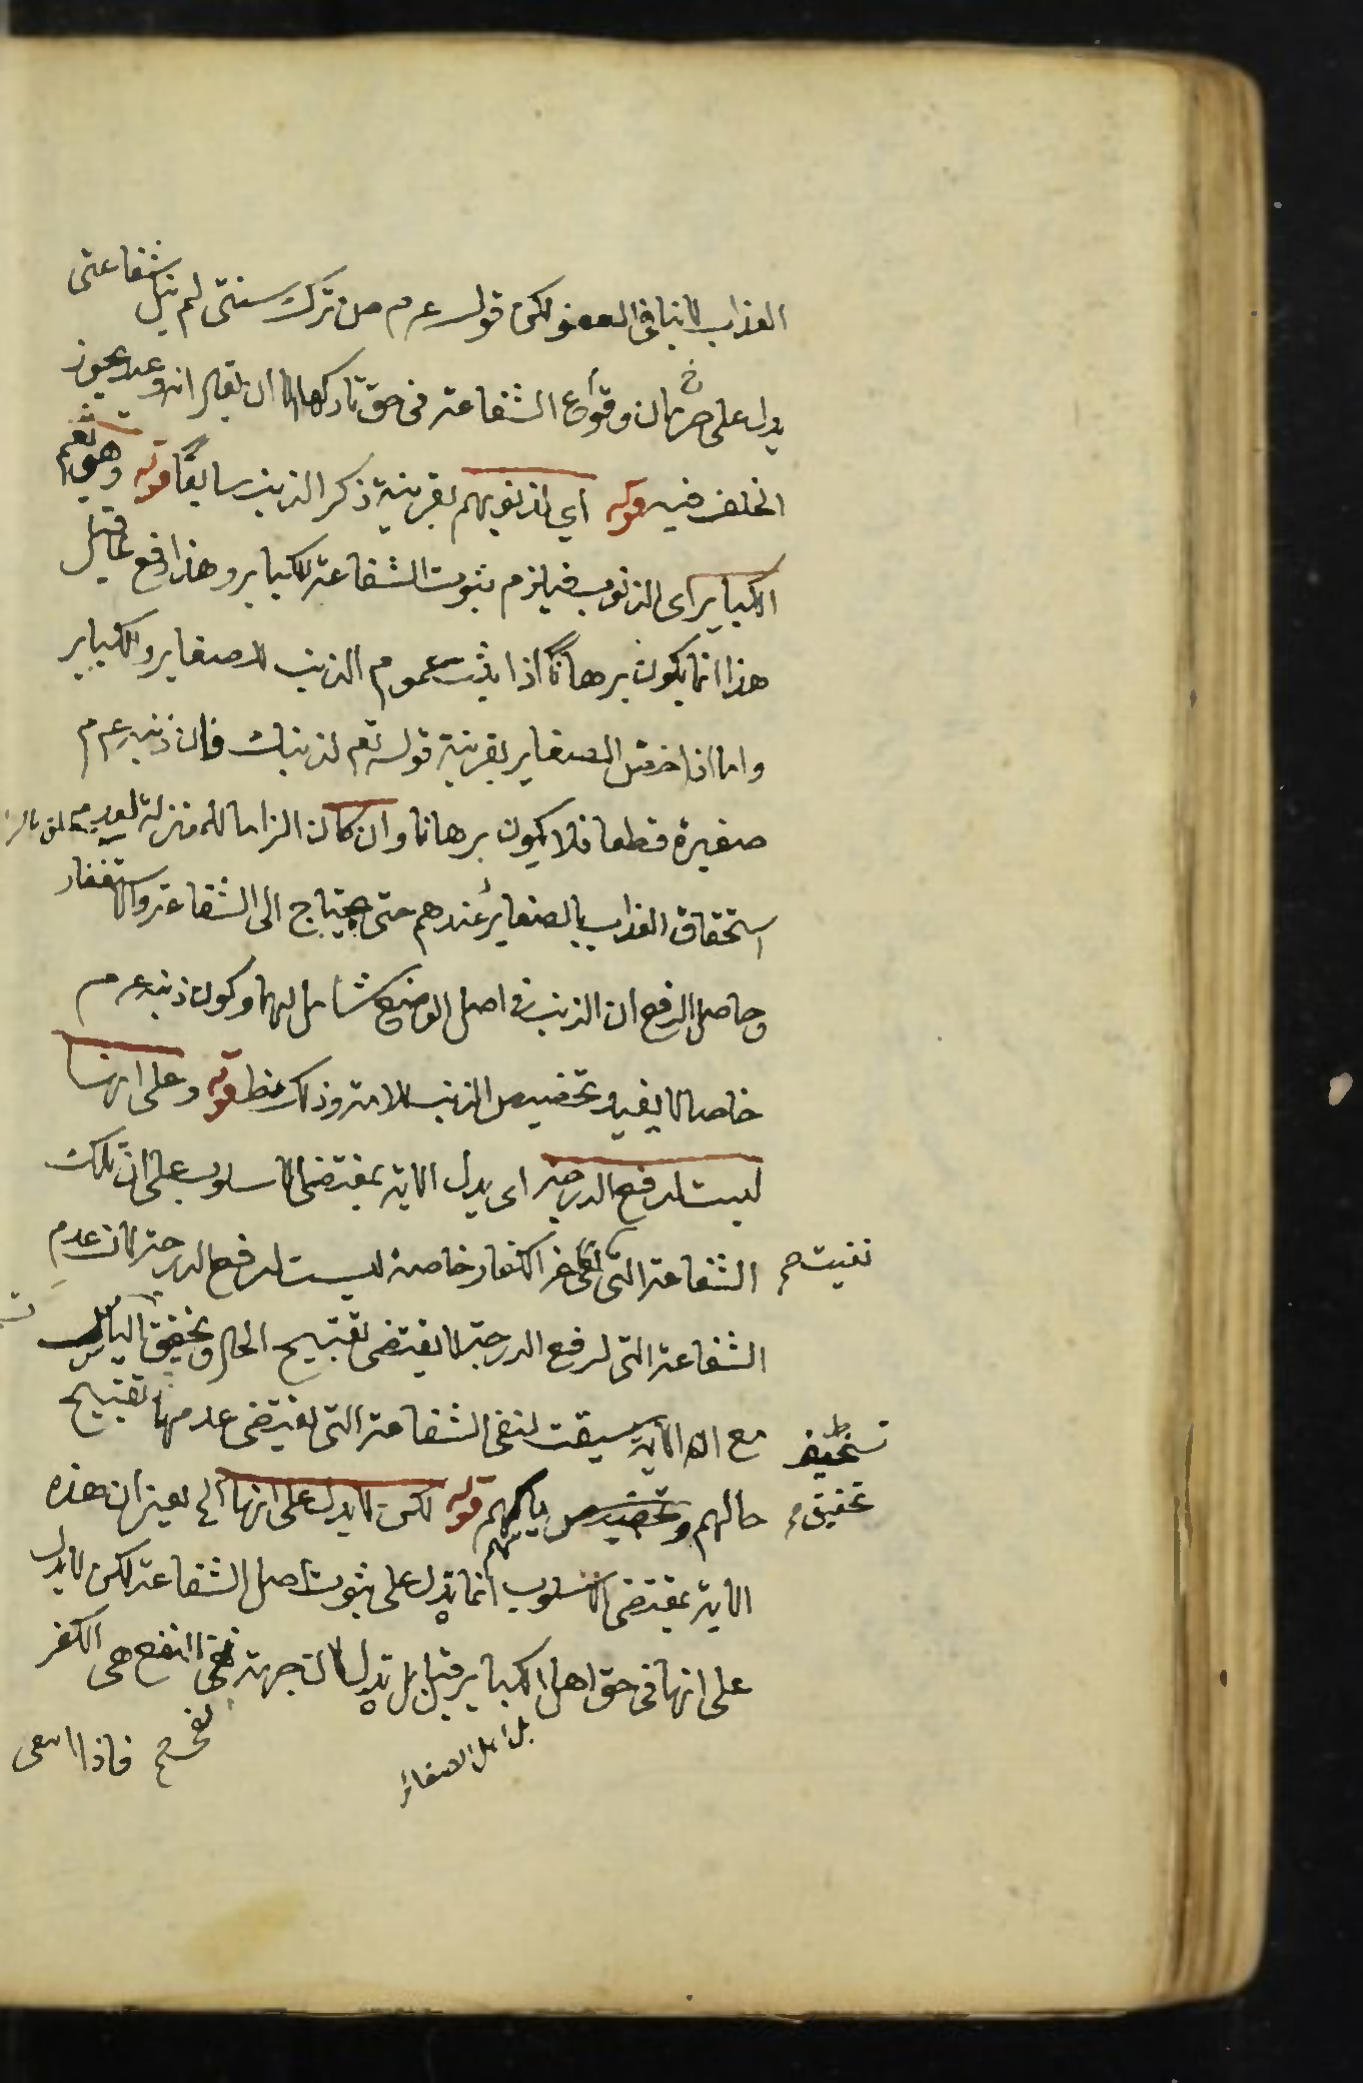 العذاب لا ينافي العفو لكن قوله عم م من ترك سنتي لم ينل شفاعتي
يدل على حرمان وقوع الشفاعة في حق تاركها الا ان يقال انه وعيد يجوز
الخلف فيه قوله اي لذنوبهم بقرينة ذكر الذنب سابقا قوله وهي تعم
الكباير اى الذنوب فيلزم ثبوت الشفاعة للكباير وهذا دفع لما قيل
هذا انما يكون برهانا اذا ثبت عموم الذنب للصغاير والكباير
واما اذا خص الصغاير بقرينة قوله تعم لذنبك فان ذنبه عم م
صغيرة قطعا فلا يكون برهانا وان كان الزاما للمعتزلة لعدم
استحقاق العذاب بالصغاير عندهم حتى يحتاج الى الشفاعة والاستغفار
وحاصل الدفع ان الذنب في اصل الوضع شامل لهما وكون ذنبه عم م
خاصا لا يفيد تخصيص الذنب للامة وذلك ظ قوله وعلى انها
ليست لرفع الدرجة اى يدل الاية بمقتضى الاسلوب على ان تلك
الشفاعة التي نفى عن الكفار خاصة ليست لرفع الدرجة لان عدم
نفيت صح
الشفاعة التي لرفع الدرجة لا يقتضى تقبيح الحال وتحقيق الياس
مع ان الاية سيقت لنفى الشفاعة التي يقتضى عدمها تقبيح
حالهم وتخصيص ياسهم قوله لكن لا يدل على انها الخ يعني ان هذه
تحقيق م
الاية بمقتضى الاسلوب انما تدل على ثبوت اصل الشفاعة لكن لا يدل
على انها في حق اهل الكباير قيل بل تدل لان جهة نفى النفع هي الكفر
بل اهل الصغائر
نفى صح
فاذا انتفى